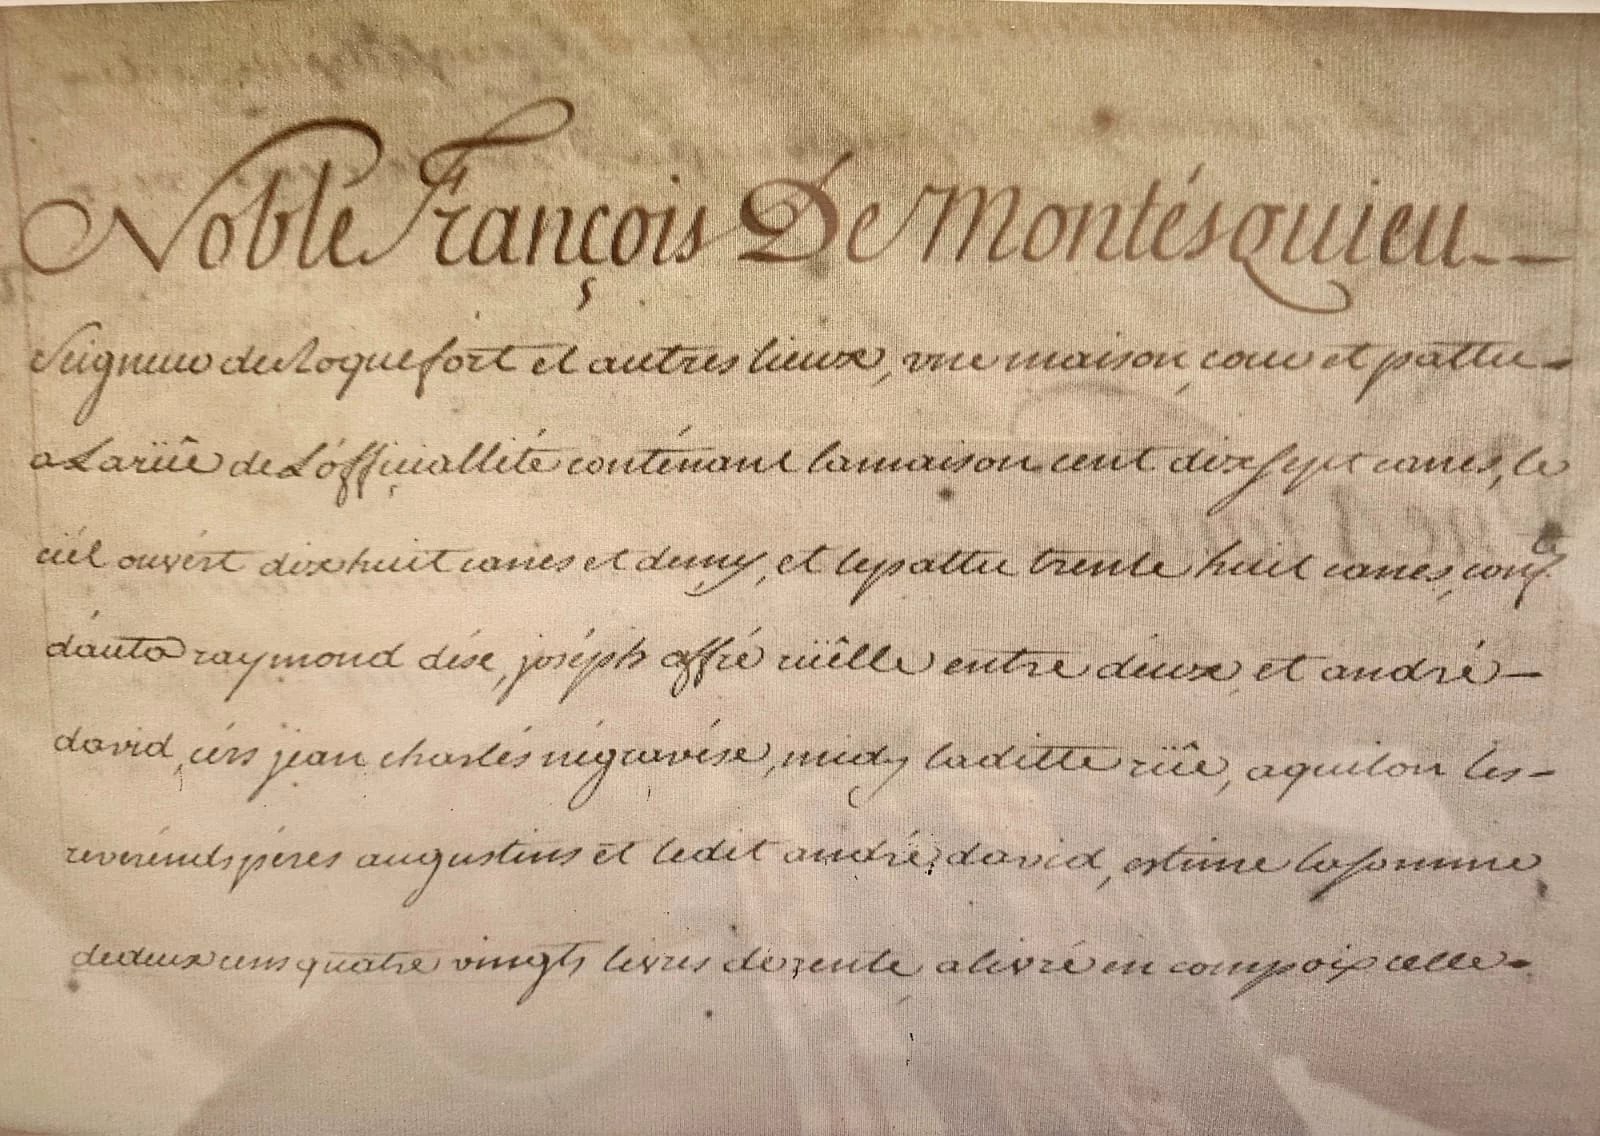 Noble François De Montésquieu
Seigneur de Roquefort et autres lieux, vne maison, cour et pattu
a La rüe de L'officiallité conténant la maison cent dix sept canes, le
ciél ouvért dix huit canes et demy, et le pattu trente huit canes, conf.
d'auta raymond dése, joséph affré rüélle entre deux, et andré
david, cérs jean charlés négravése, midy laditte rüe, aquilon lés
revérénds péres augustins et ledit andré david, estimé la somme
de deux cens quatre vingts livres de rente alivré en compoix celle